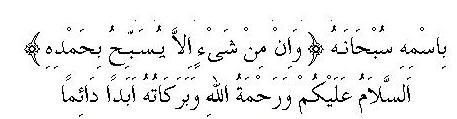 بِاسْمِهِ سُبْحَانَهُ ﴿ وَاِنْ مِنْ شَىْءٍ اِلاَّ يُسَبِّحُ بِحَمْدِهِ ﴾
اَلسَّلاَمُ عَلَيْكُمْ وَرَحْمَةُ اللهِ وَبَرَكَاتُهُ اَبَدًا دَائِمًا